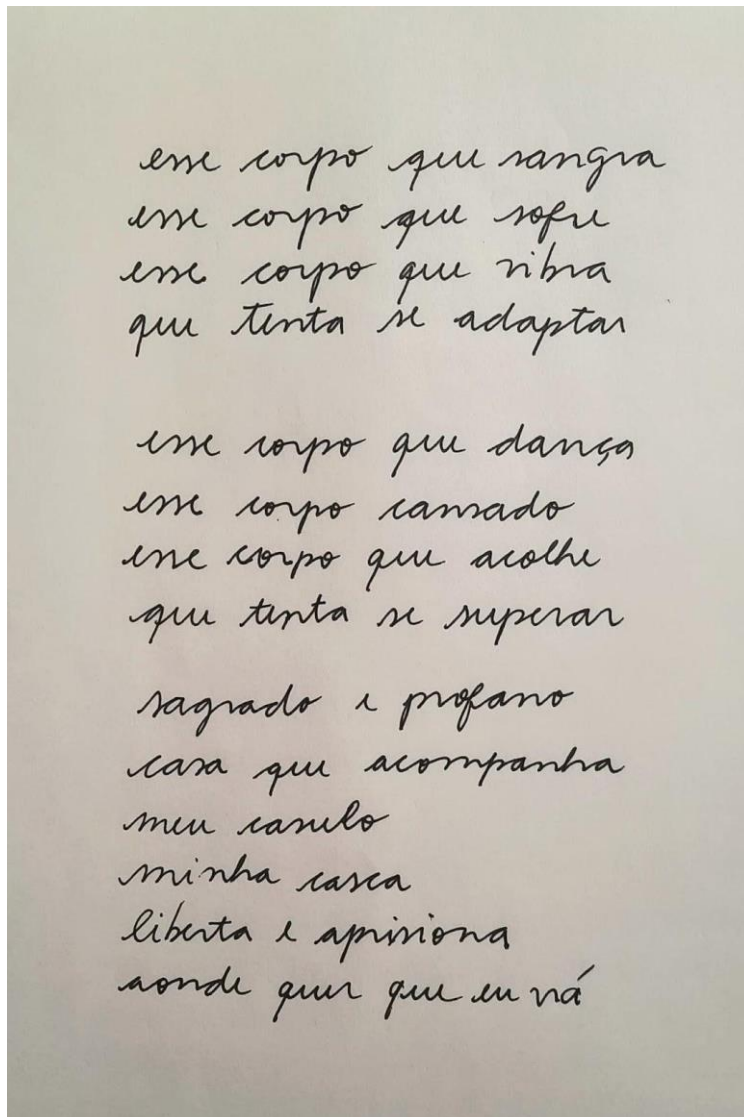 esse corpo que sangra
esse corpo que sofre
esse corpo que vibra
que tenta se adaptar
esse corpo que dança
esse corpo cansado
esse corpo que acolhe
que tenta se superar
sagrado e profano
casa que acompanha
meu casulo
minha casca
liberta e aprisiona
aonde quer que eu vá